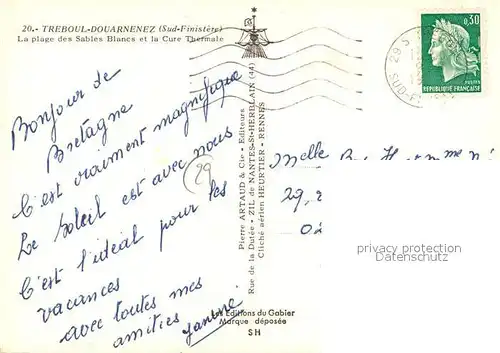 20.- TREBOUL-DOUARNENEZ (Sud-Finistère)
La plage des Sables Blancs et la Cure Thermale
Bonjour de
Bretagne
C'est vraiment magnifique
Le soleil est avec nous
C'est l'idéal pour les
vacances
avec toutes mes
amitiés Janine
29
Pierre ARTAUD & Cie - Editeurs
Rue de la Dutée - ZIL de NANTES-St-HERBLAIN (44)
Cliché aérien HEURTIER - RENNES
Les Editions du Gabier
Marque déposée
SH
0,30
REPUBLIQUE FRANÇAISE
POSTES
29
SUD-F
Melle
29,
privacy protection
Datenschutz